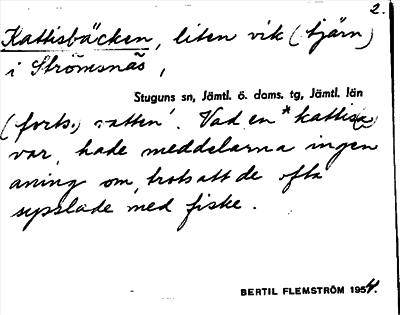 2.
Kattisbäcken, liten vik (tjärn)
i Strömsnäs,
Stuguns sn, Jämtl. ö. doms. tg, Jämtl. län
(forts.) vatten'. Vad en *kattis(a)
var, hade meddelarna ingen
aning om, trots att de ofta
sysslade med fiske.
BERTIL FLEMSTRÖM 1954.